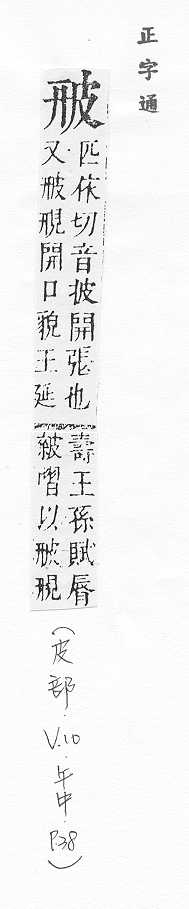 正字通
匹依切音披開張也
又開口貌王延
壽王孫賦脣
以
(皮部.V.10.午中.P.38)